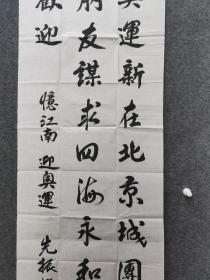 奧運新在北京城團
朋友謀求四海永和
歡迎
憶江南 迎奧運
先振